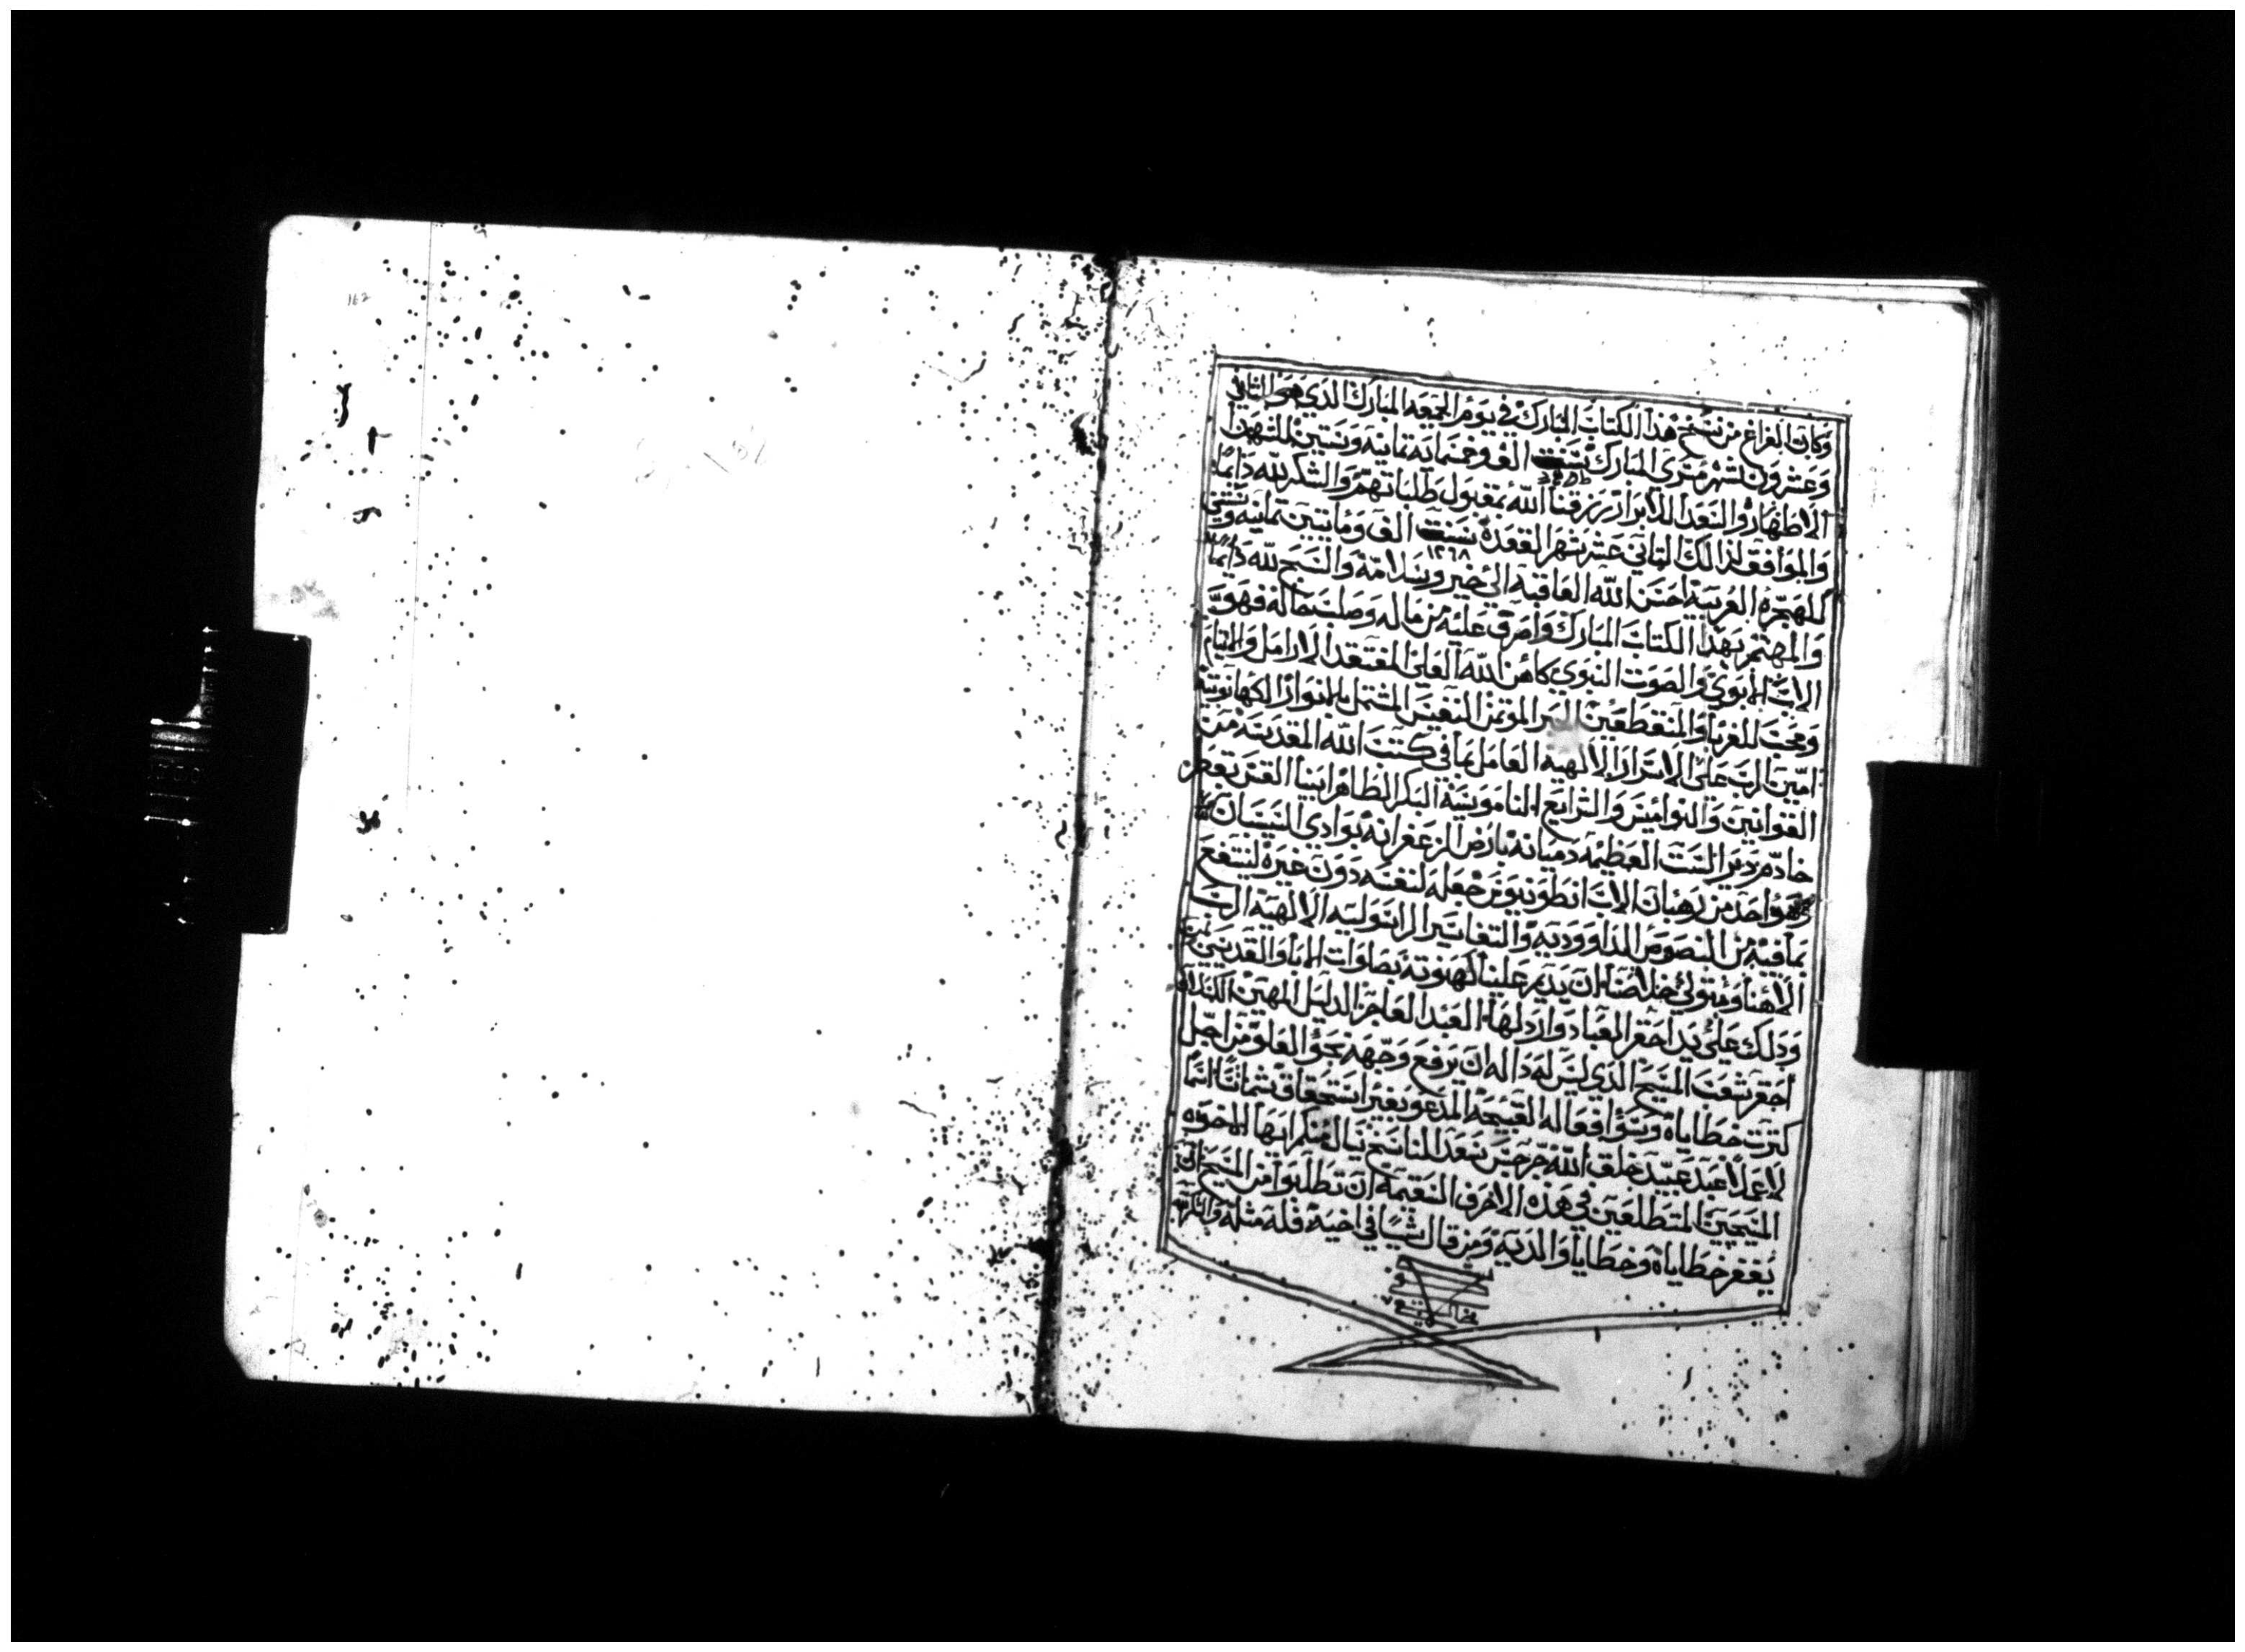 وكان الفراغ من نسخ هذا الكتاب المبارك في يوم الجمعه المبارك الذي هو الثاني
وعشرون شهر مسرى المبارك سنت الف وخمسمايه تمانيه وستين للشهدا
الاطهار والسعدا الابرار رزقنا الله بمقبول طلباتهم والشكر لله دايمًا
والموافق لذالك التاني عشر شهر القعدة سنت الف ومايتين تمانيه وستين
١٢٦٨
للهجره العربيه احسن الله العاقبه الي خير وسلامة والسبح لله دايمًا
والمهتم بهذا الكتاب المبارك واصرف عليه من ماله وصلب حاله فهو
الاب الابوي والصوت النبوي كاهن الله العلي المفتقد الارامل والايتام
ومحب للغربا والمنقطعين البر الموتمن النفيس المشتمل بالانوار الكهنوتيه
امين الرب على الاسرار الالهيه العامل بما في كتب الله المقدسه من
القوانين والنواميس والشرايع الناموسيه البكر الطاهر ابينا القس
خادم دير الست العظيمه دميانه بارض الزعفرانه بوادي السيسبان
واحد من رهبان الاب انطونيوس جعله لنفسه دون غيره لينتفع
بما فيه من النصوص الداوودية والتفاسير الرسوليه الالهيه الرب
الاهنا ومتولي خلاصنا ان يديم علينا كهنوته بصلوات الابا والقديسين
ودلك على يد احقر العباد وارذلها العبد العاجز الدليل المهين الكسلان
احقر شعب المسيح الذي ليس له داله ان يرفع وجهه نحو العلو من اجل
كترت خطاياه وسوء افعاله القبيحه المدعو بغير استحقاق شماسًا اسمًا
لا عملا عبد عبيد خلف الله جرجس سعد الناسخ يسال منكم ايها الاخوه
المسيحيين المتطلعين في هذه الاحرف السقيمه ان تطلبوا من المسيح ان
يغفر خطاياه وخطايا والديه ومن قال شيًا في اخيه فله مثله